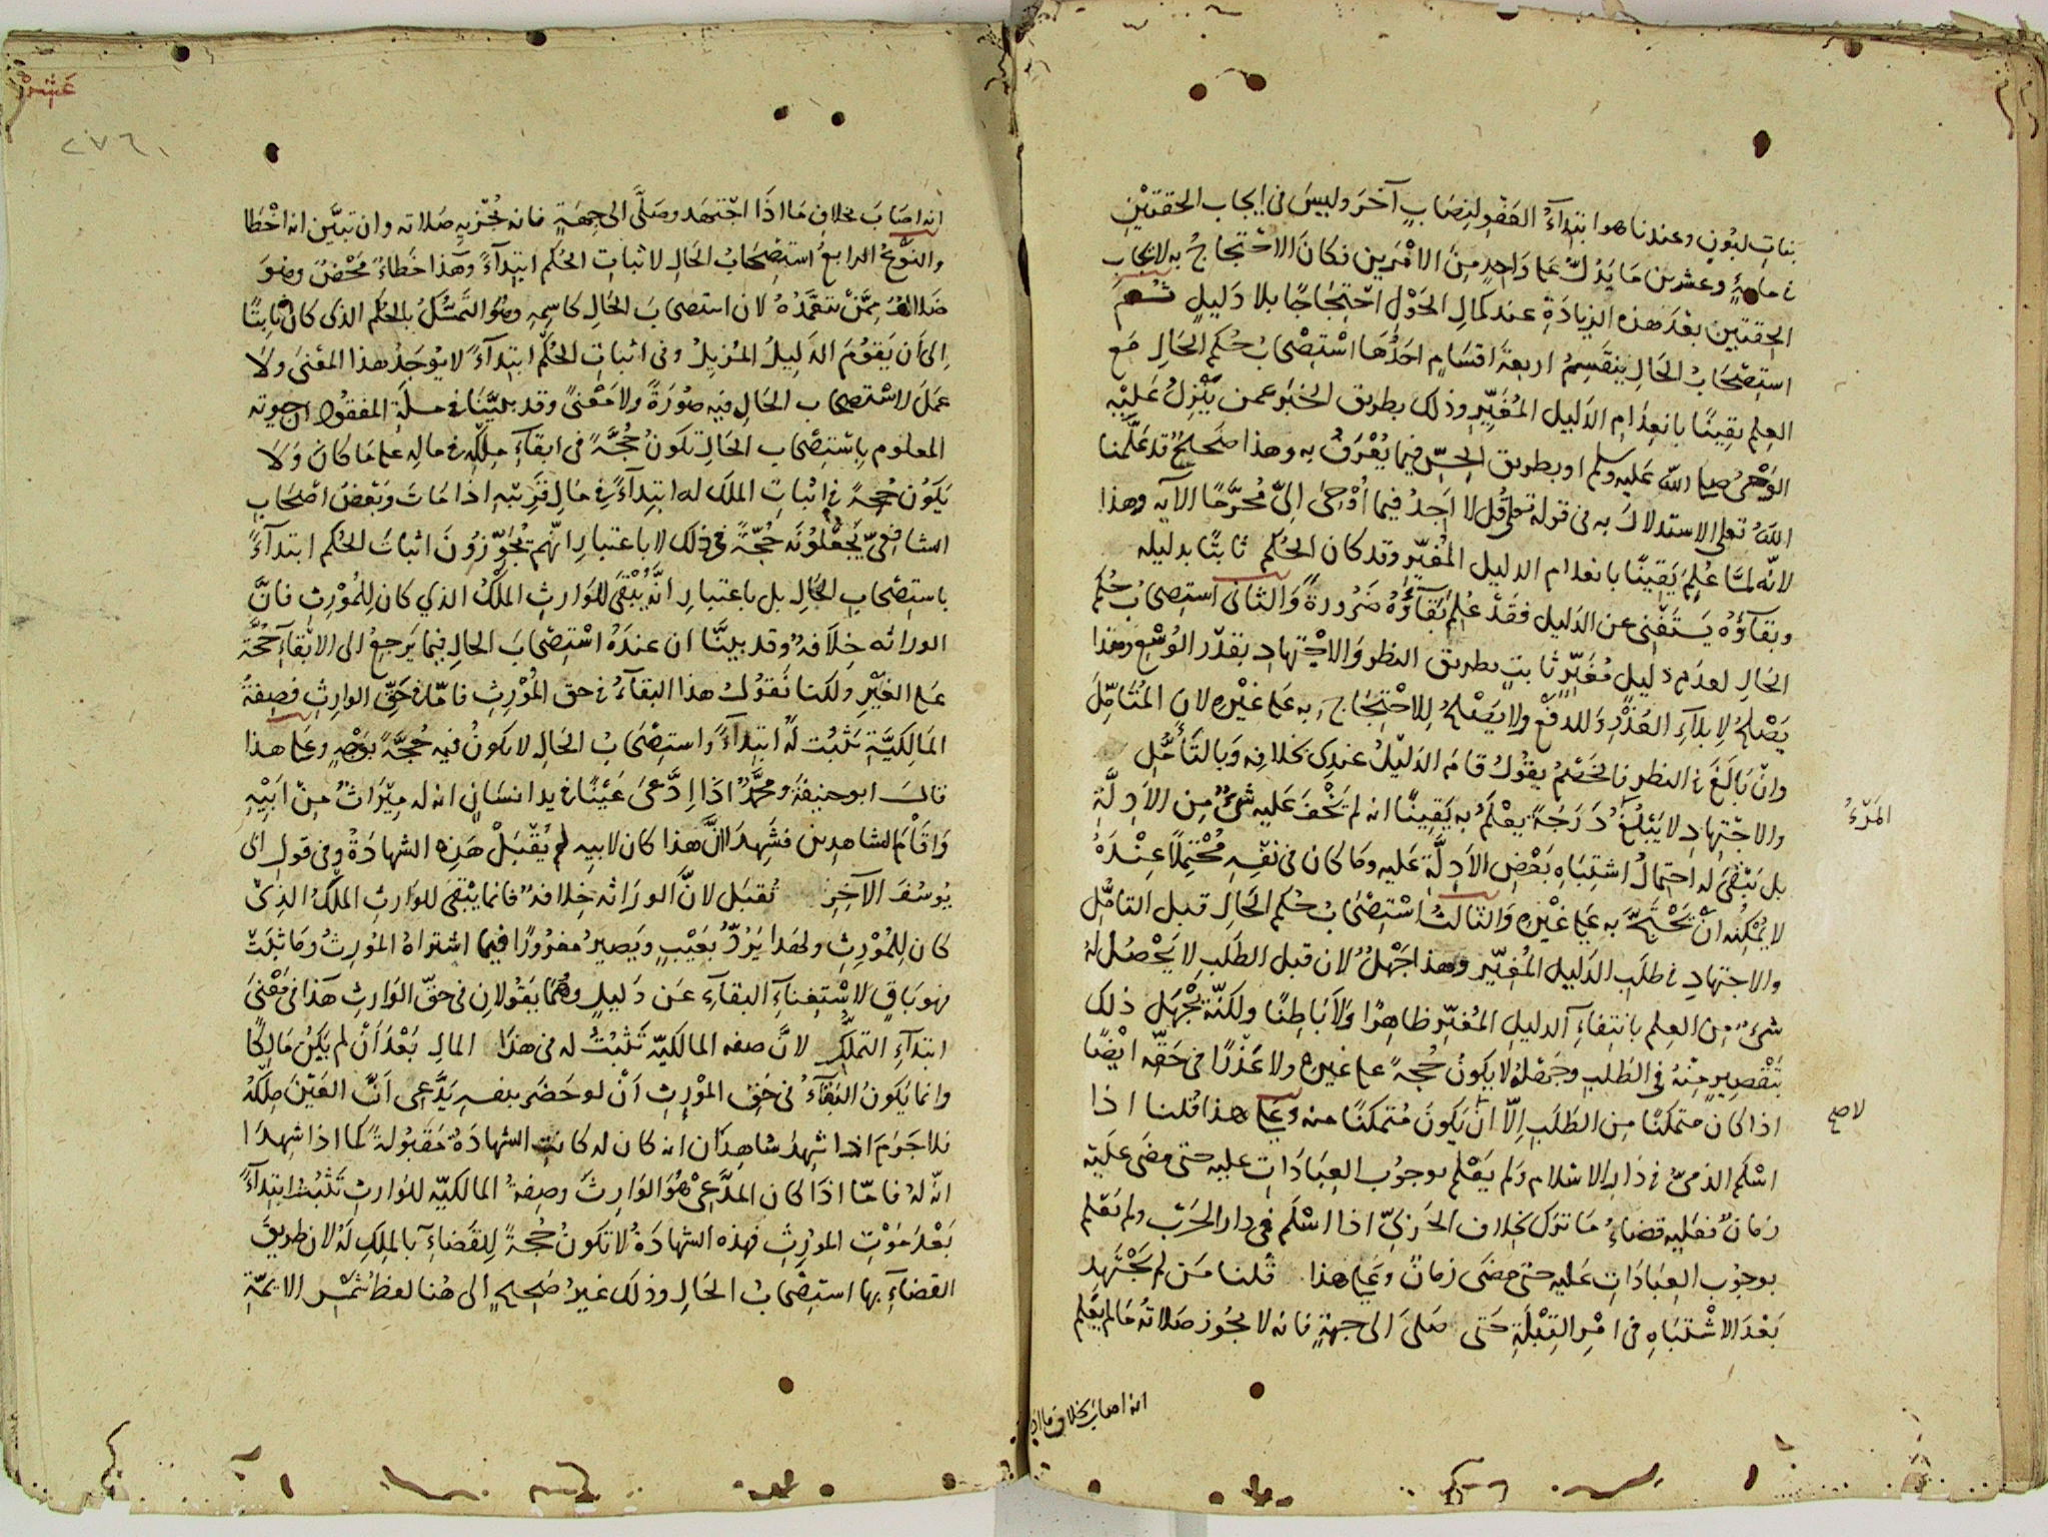 بنات لبون وعندنا هو ابتداء العفو لنصاب آخر وليس في ايجاب الحقتين
في مائة وعشرين ما يدل على واحد من الامرين فكان الاحتجاج به لايجاب
الحقتين بعد هذه الزيادة عند كمال الحول احتجاجا بلا دليل ثم
استصحاب الحال ينقسم اربعة اقسام احدها استصحاب حكم الحال مع
العلم يقينا بانعدام الدليل المغير وذلك بطريق الخبر عمن ينزل عليه
الوحي صلى الله عليه وسلم او بطريق الحس فيما يعرف به وهذا صحيح قد علمنا
الله تعالى الاستدلال به في قوله تعالى قل لا اجد فيما أوحى إلى محرما الآيه وهذا
لانه لما علم يقينا بانعدام الدليل المغير وقد كان الحكم ثابتا بدليله
وبقاؤه يستغنى عن الدليل فقد علم بقاؤه ضرورة والثانى استصحاب حكم
الحال لعدم دليل مغير ثابت بطريق النظر والاجتهاد بقدر الوسع وهذا
يصلح لابلاء العذر وللدفع ولا يصلح للاحتجاج به على غيره لان المتأمل
وان بالغ في النظر فالخصم يقول قام الدليل عندى بخلافه وبالتأمل
والاجتهاد لا يبلغ درجة يعلم به يقينا انه لم يخف عليه شئ من الادلة
المرء
بل يبقى له احتمال اشتباه بعض الادلة عليه وما كان في نفسه محتملا عنده
لا يمكنه ان يحتج به على غيره والثالث استصحاب حكم الحال قبل التأمل
والاجتهاد في طلب الدليل المغير وهذا جهل لان قبل الطلب لا يحصل له
شئ من العلم بانتفاء الدليل المغير ظاهرا ولا باطنا ولكنه يجهل ذلك
بتقصير منه في الطلب وجهله لا يكون حجة على غيره ولا عذرا في حقه ايضا
اذا كان متمكنا من الطلب إلا ان يكون متمكنا منه وعلى هذا قلنا اذا
لا صح
اسلم الذمى في دار الاسلام ولم يعلم بوجوب العبادات عليه حتى مضى عليه
زمان فعليه قضاء ما ترك بخلاف الحربى اذا اسلم في دار الحرب ولم يعلم
بوجوب العبادات عليه حتى مضى زمان وعلى هذا قلنا من لم يجتهد
بعد الاشتباه في امر القبلة حتى صلى الى جهة فانه لا يجوز صلاته ما لم يعلم
انه اصاب بخلاف ما اذا
عشر
٢٧٦
انه اصاب بخلاف ما اذا اجتهد وصلى الى جهة فانه تجزيه صلاته وان تبين انه اخطا
والنوع الرابع استصحاب الحال لاثبات الحكم ابتداء وهذا خطاء محض وهو
ضلال ممن تعمده لان استصحاب الحال كاسمه وهو التمسك بالحكم الذى كان ثابتا
الى أن يقوم الدليل المزيل وفى اثبات الحكم ابتداء لا يوجد هذا المعنى ولا
عمل لاستصحاب الحال فيه صورة ولا معنى وقد بينا في مسلة المفقود ان حيوته
المعلوم باستصحاب الحال تكون حجة في ابقاء ملكه في ماله على ما كان ولا
يكون حجة في اثبات الملك له ابتداء في مال قريبه اذا مات وبعض اصحاب
الشافعى يجعلونه حجة في ذلك لا باعتبار انهم يجوزون اثبات الحكم ابتداء
باستصحاب الحال بل باعتبار انه يبقى للوارث الملك الذي كان للمورث فان
الوراثه خلافة وقد بينا ان عنده استصحاب الحال فيما يرجع الى الابقاء حجة
على الغير ولكنا نقول هذا البقاء في حق المورث فاما في حق الوارث فصفة
المالكية تثبت له ابتداء واستصحاب الحال لا يكون فيه حجة بوجه وعلى هذا
قال ابو حنيفة ومحمد اذا ادعى عينا في يد انسان انه له ميراث من ابيه
واقام الشاهدين فشهدا ان هذا كان لابيه لم يقبل هذه الشهادة وفى قول ابى
يوسف الآخر تقبل لان الوراثه خلافة فانما يبقى للوارث الملك الذى
كان للمورث ولهذا يرد بعيب ويصير مغرورا فيما اشتراه المورث وما ثبت
فهو باق لاستغناء البقاء عن دليل وهما يقولان في حق الوارث هذا في معنى
ابتداء التملك لان صفه المالكية تثبت له في هذا المال بعد أن لم يكن مالكا
وانما يكون البقاء في حق المورث ان لو حضر بنفسه يدعى ان العين ملكه
فلا جرم اذا شهد شاهدان انه كان له كانت الشهادة مقبولة كما اذا شهدا
انه له فاما اذا كان المدعى هو الوارث وصفة المالكيه للوارث تثبت ابتداء
بعد موت المورث فهذه الشهادة لا تكون حجة للقضاء بالملك له لان طريق
القضاء بها استصحاب الحال وذلك غير صحيح الى هنا لفظ شمس الايمة